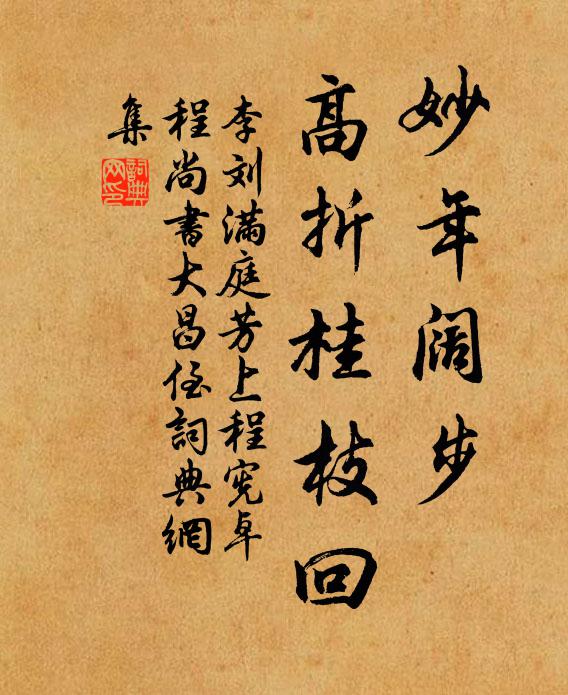 妙年阔步
高折桂枝回
李刘满庭芳上程宪卓
程尚书大昌侄詞典網
集
詞典网印